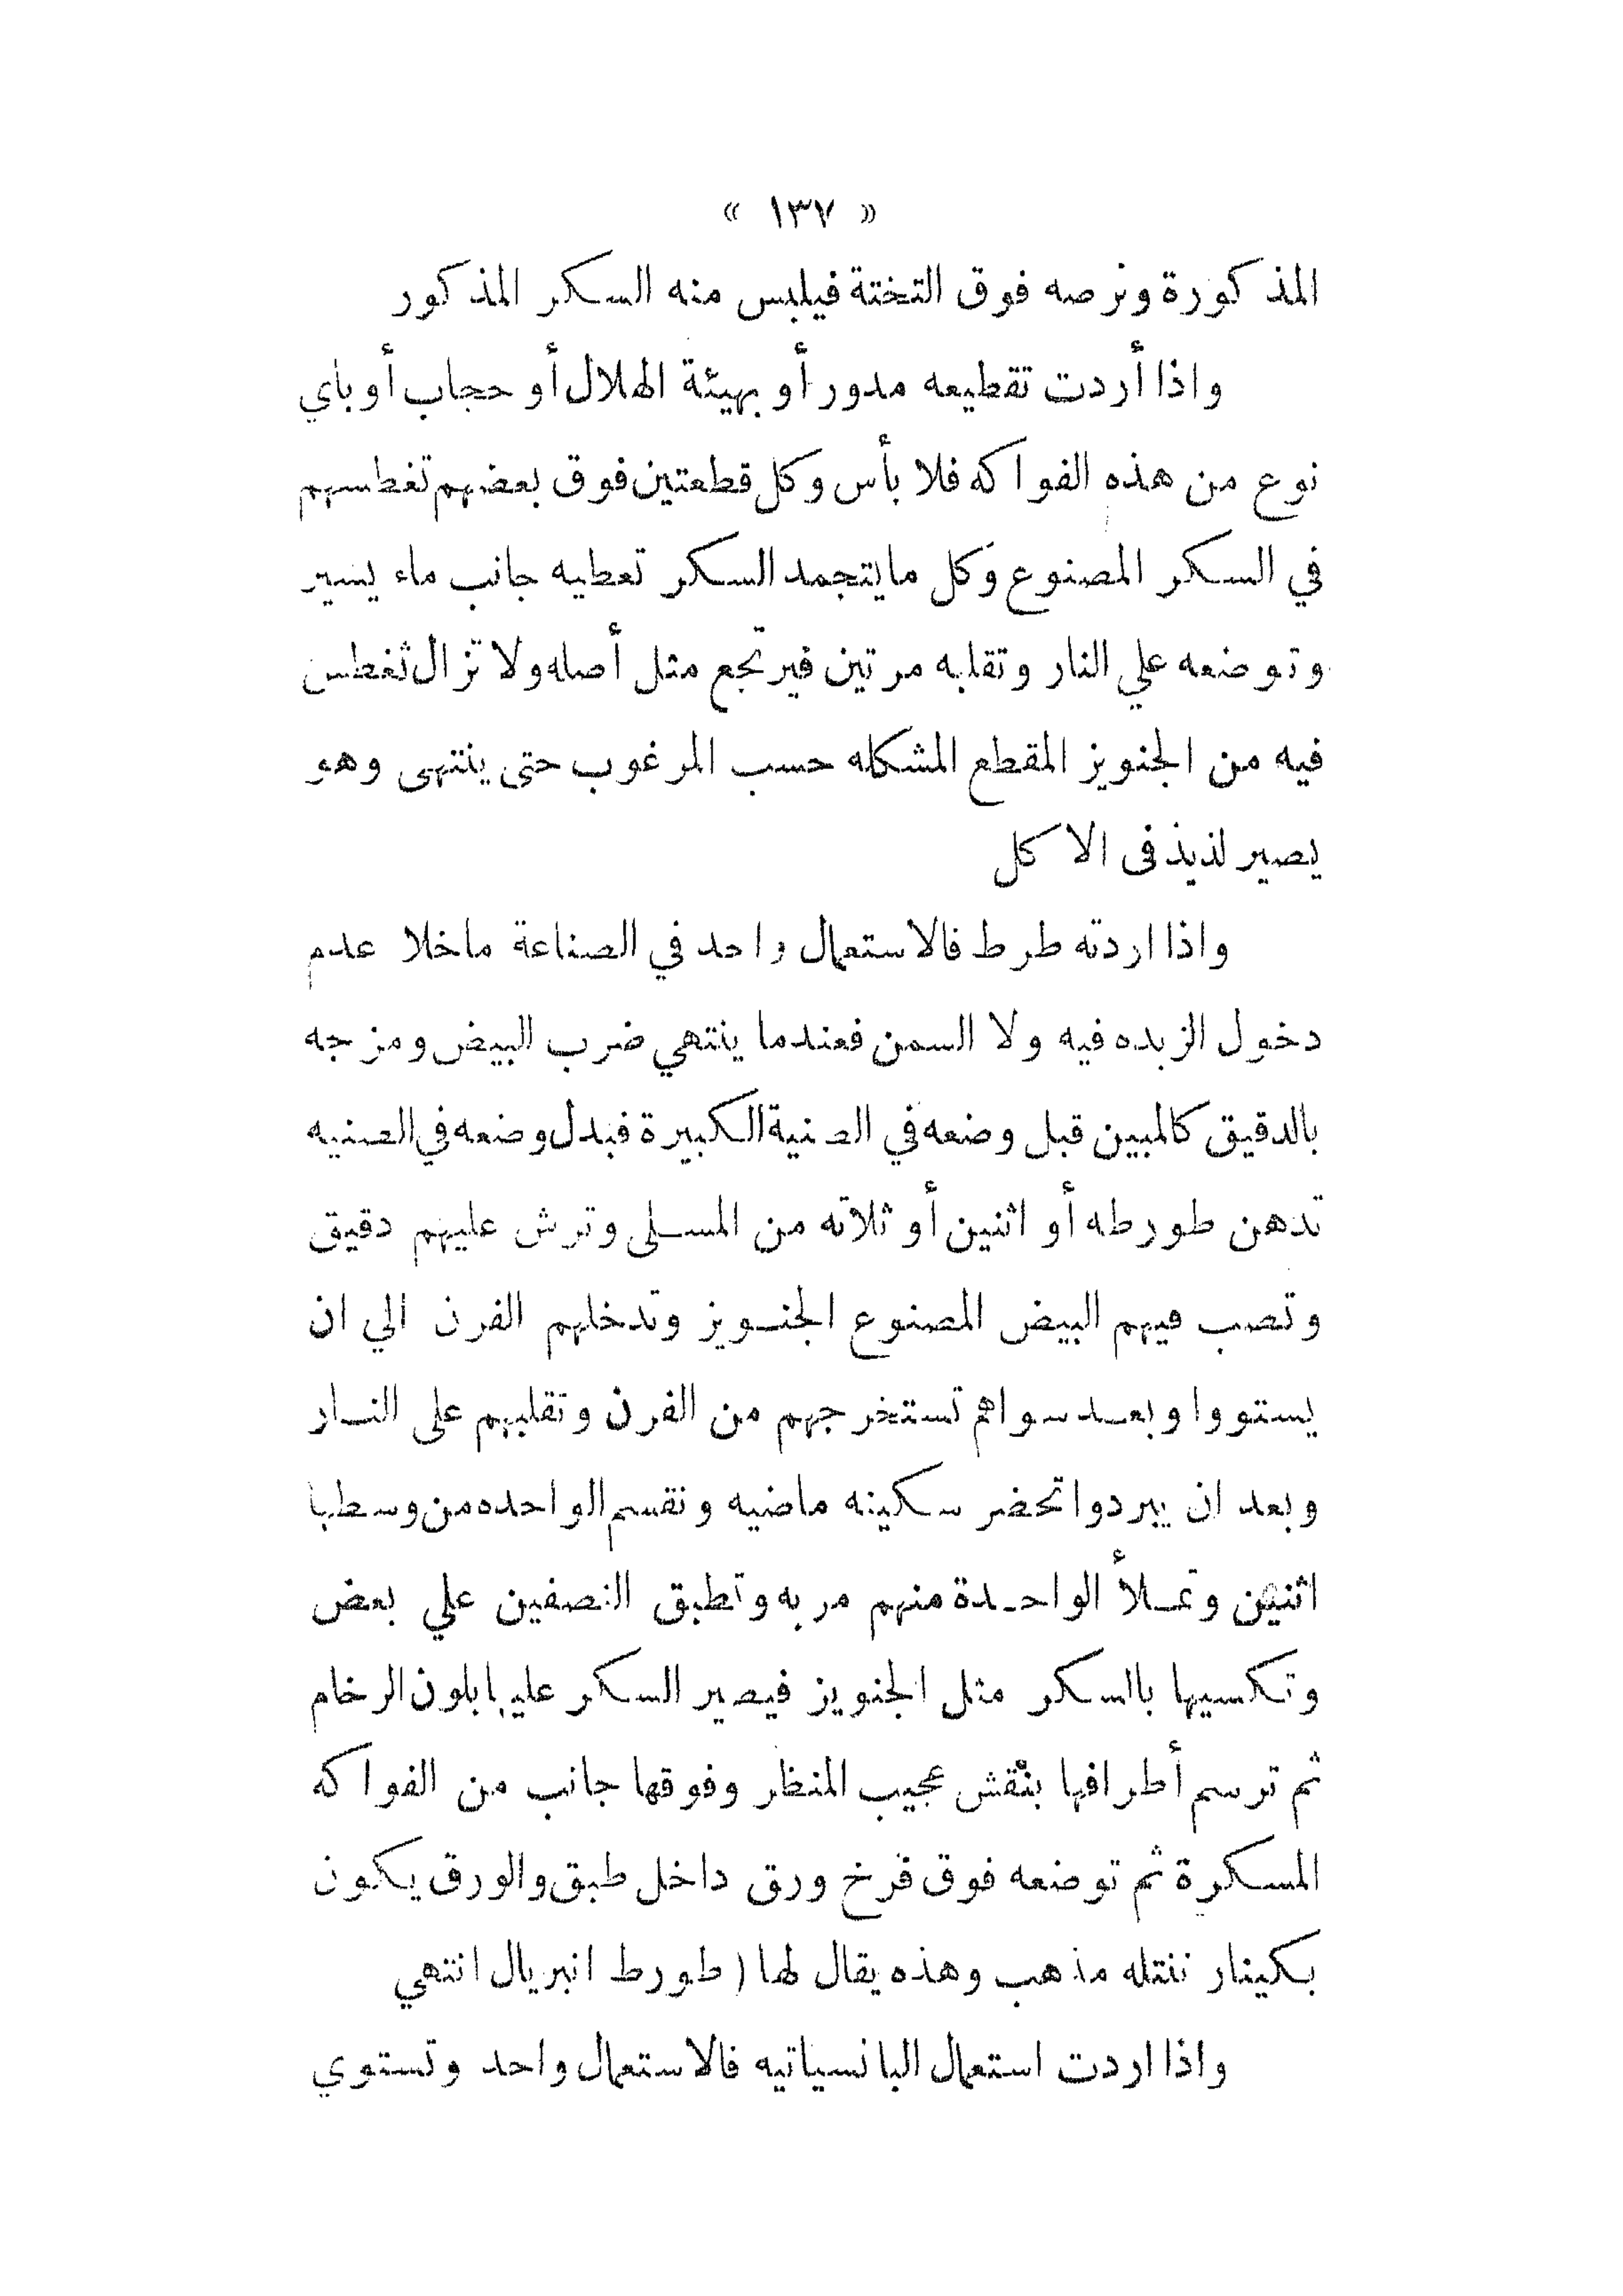 « ١٣٧ »
المذكورة ونرصه فوق التختة فيلبس منه السكر المذكور
واذا أردت تقطيعه مدور أو بهيئة الهلال أو حجاب أو بأي
نوع من هذه الفواكه فلا بأس وكل قطعتين فوق بعضهم تغطسهم
في السكر المصنوع وكل مايتجمد السكر تعطيه جانب ماء يسير
وتوضعه علي النار وتقلبه مرتين فيرتجع مثل أصله ولا تزال تغطس
فيه من الجنويز المقطع المشكله حسب المرغوب حتى ينتهى وهو
يصير لذيذ فى الاكل
واذا اردته طرط فالاستعمال واحد في الصناعة ماخلا عدم
دخول الزبده فيه ولا السمن فعندما ينتهي ضرب البيض ومزجه
بالدقيق كالمبين قبل وضعه في الصنية الكبيرة فبدل وضعه في الصنيه
تدهن طورطه أو اثنين أو ثلاثه من المسلى وترش عليهم دقيق
وتصب فيهم البيض المصنوع الجنويز وتدخلهم الفرن الي ان
يستووا وبعد سواهم تستخرجهم من الفرن وتقلبهم على النار
وبعد ان يبردوا تحضر سكينه ماضيه وتقسم الواحده من وسطها
اثنين وتملأ الواحدة منهم مربه وتطبق النصفين علي بعض
وتكسيها بالسكر مثل الجنويز فيصير السكر عليها بلون الرخام
ثم ترسم أطرافها بنقش عجيب المنظر وفوقها جانب من الفواكه
المسكرة ثم توضعه فوق فرخ ورق داخل طبق والورق يكون
بكينار ننتله مذهب وهذه يقال لها ( طورط انبريال انتهي
واذا اردت استعمال البانسياتيه فالاستعمال واحد وتستوي